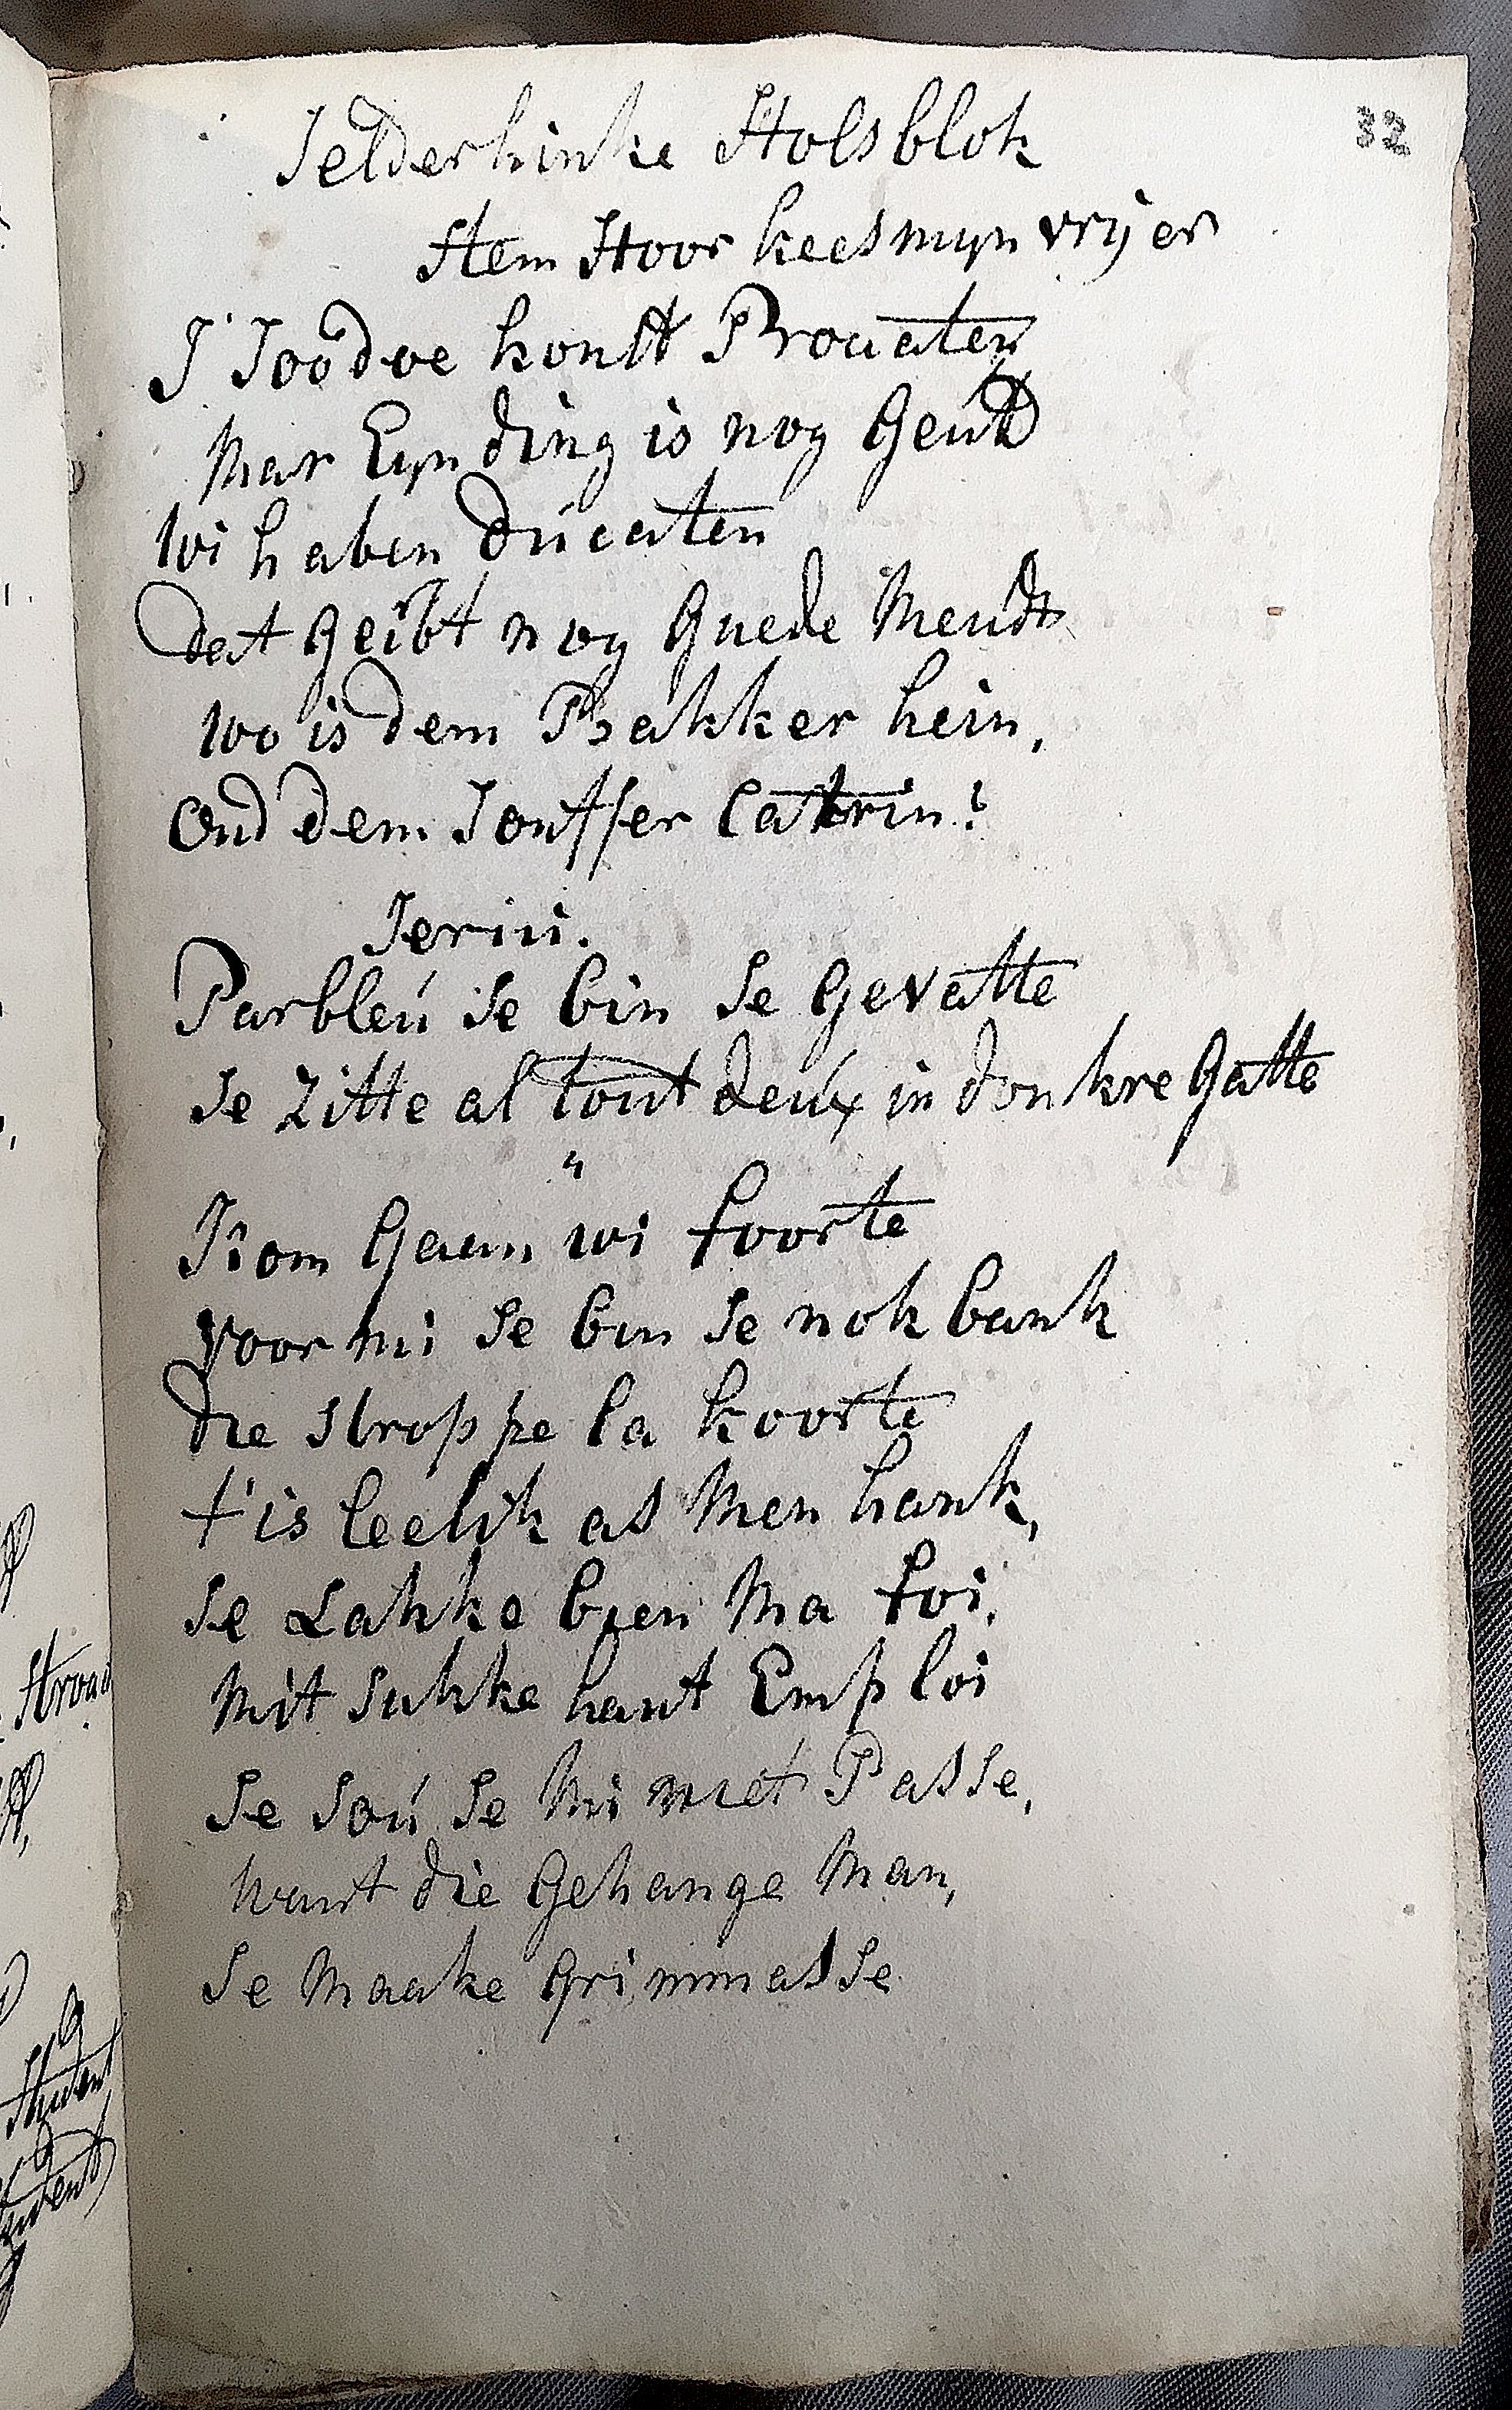 32
Jelderhinke Holsblok
Stem Hoor kees myn vrijer
J Joodoe konst Prouaten
Mar Eyn ding is nog Geüd
Wi haben Dúcaten
dat Geibt nog Guede Meudt
wo is dem Bakker hein,
Ond dem Jouffer Catrin!
Jeriü.
Parbleú se bin se Gevatte
se Zitte al tout deúx in donkre Gatte
Kom Gaan wi foorte
voor mi se bin se nok bank
die stroppe la koorte
t'is leelik as Men hank,
se Lakke bien Ma foi,
Mit sukke hant Emploi
se soú se Mi niet Passe,
want die Gehange Man,
se Maake Grimmasse